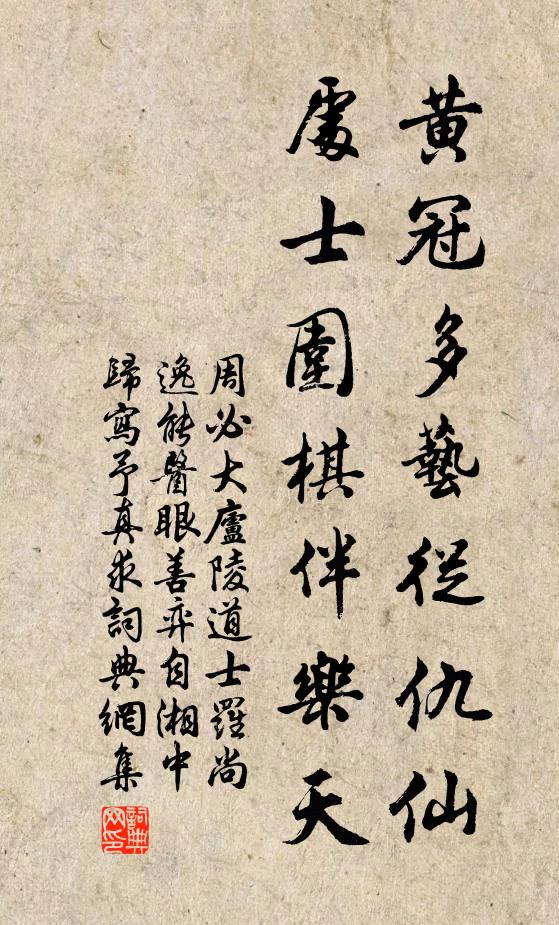 黃冠多藝從仇仙
處士圍棋伴樂天
周必大廬陵道士羅尚
逸能醫眼善弈自湘中
歸寫予真求詞典網集
詞典网印